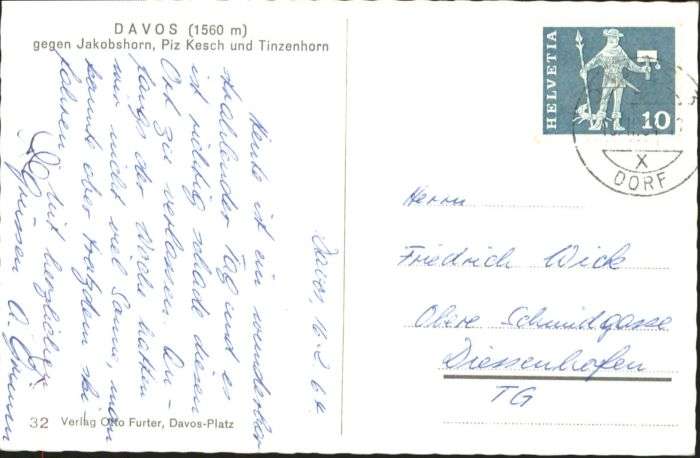 DAVOS (1560 m)
gegen Jakobshorn, Piz Kesch und Tinzenhorn
HELVETIA
10
X
DORF
Davos, 16.2.64
Heute ist ein wunderbar
strahlender Tag und es
ist richtig schade diesen
Ort zu verlassen. An-
fangs der Woche hatten
wir nicht viel Sonne, man
konnte aber trotzdem ski-
fahren.
Mit herzlichen
Grüssen A.
Herrn
Friedrich Wick
Obere Schmidgasse
Diessenhofen
TG
32 Verlag Otto Furter, Davos-Platz